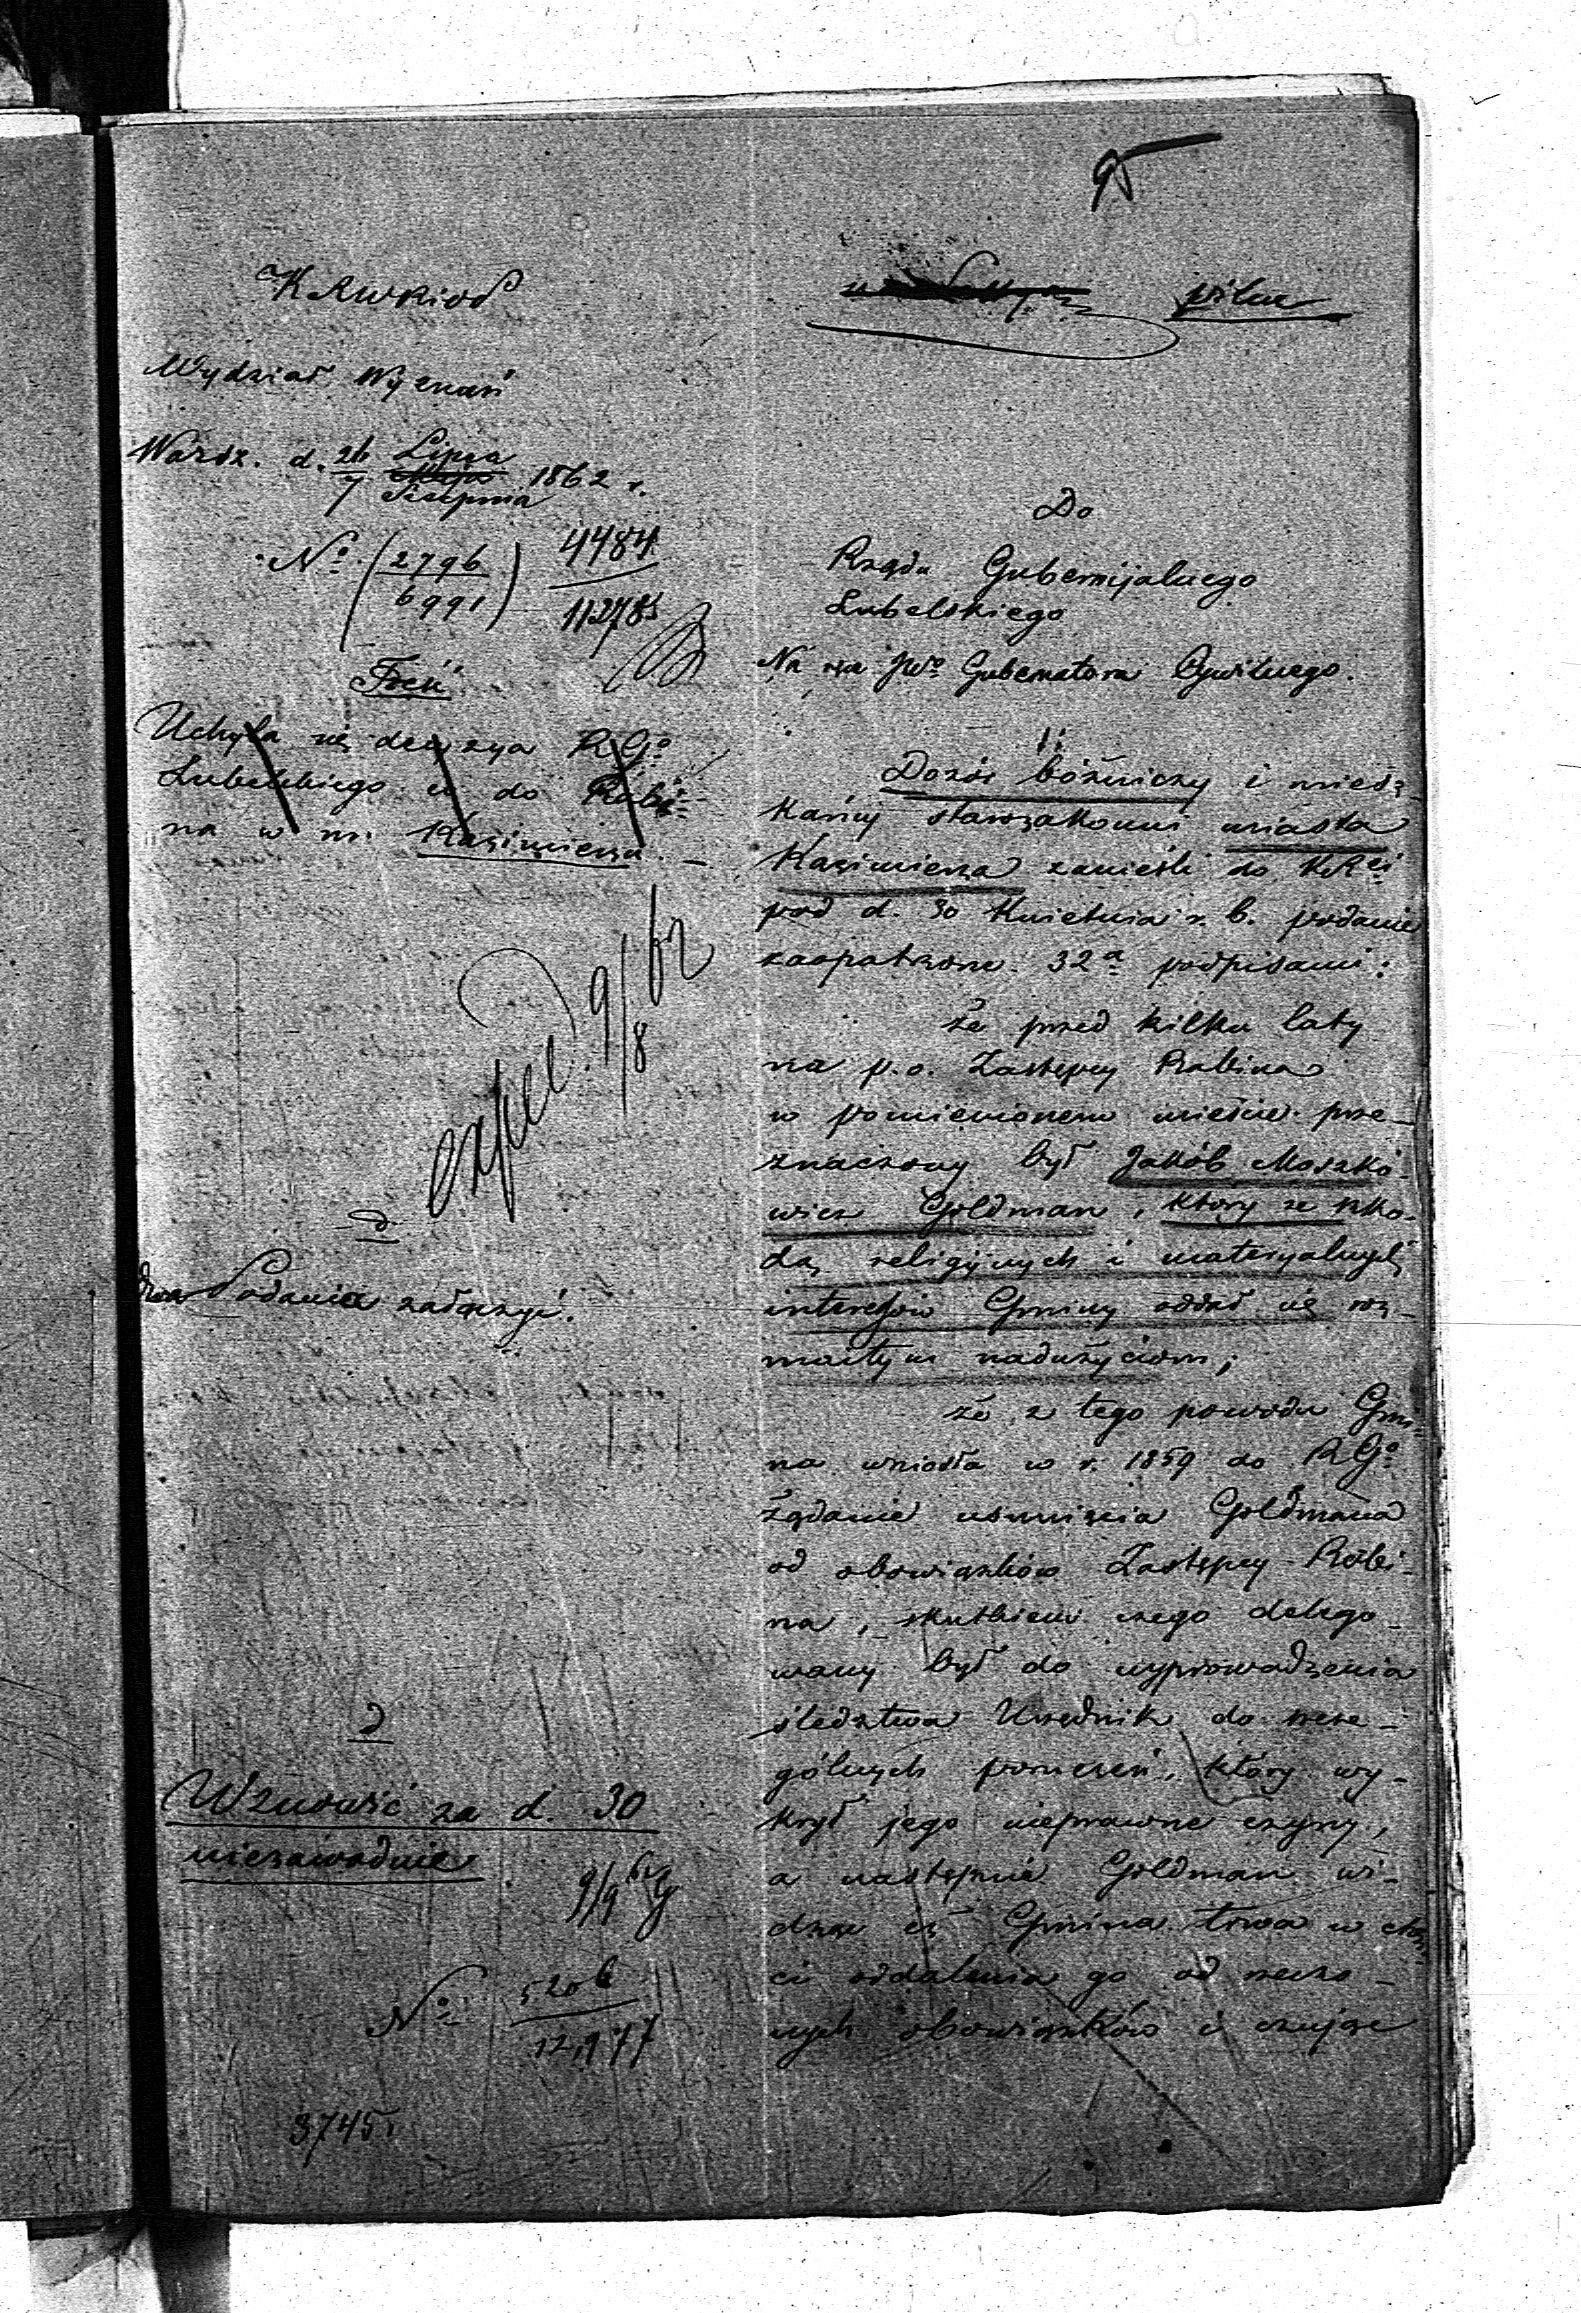 95
KRWRiOP
pilne
Wydział Wyznań
Warsz. d. 26 Lipca
7 Sierpnia 1862 r.
No (2796/6991) 4484/11278
Treść
Uchyla się decyzya RGo
Lubelskiego co do Rabi-
na w m. Kazimierzu. –
exped. 9/8 62
d
dwa Podania załączyć.
d
Wznowić za d. 30
niezawodnie
9/9 62
No 5206/12,977
3745
Do
Rządu Gubernijalnego
Lubelskiego
Na ręce JWo Gubernatora Cywilnego.
Dozór bóźniczy i miesz-
kańcy starozakonni miasta
Kazimierza zanieśli do KRei
pod d. 30 Kwietnia r. b. podanie
zaopatrzone 32a podpisami:
że przed kilku laty
na p. o. Zastępcy Rabina
w pomienionem mieście prze-
znaczony był Jakób Moszko-
wicz Goldman, który ze szko-
dą religijnych i materyalnych
interessów Gminy oddał się roz-
maitym nadużyciom;
że z tego powodu Gmi-
na wniosła w r. 1859 do RGo
żądanie usunięcia Goldmana
od obowiązków Zastępcy Rabi-
na, skutkiem czego delego-
wany był do wyprowadzenia
śledztwa Urzędnik do szcze-
gólnych poruczeń, który wy-
krył jego nieprawne czyny,
a następnie Goldman wi-
dząc iż Gmina trwa w chę-
ci oddalenia go od rzeczo-
nych obowiązków i czując